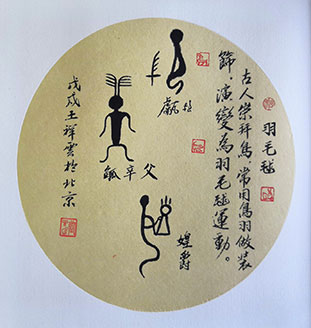 羽毛毬
古人崇拜鳥,常用鳥羽做裝
飾,演變為羽毛毬運動。
父辛觚
爵
戊戌王祥雲於北京